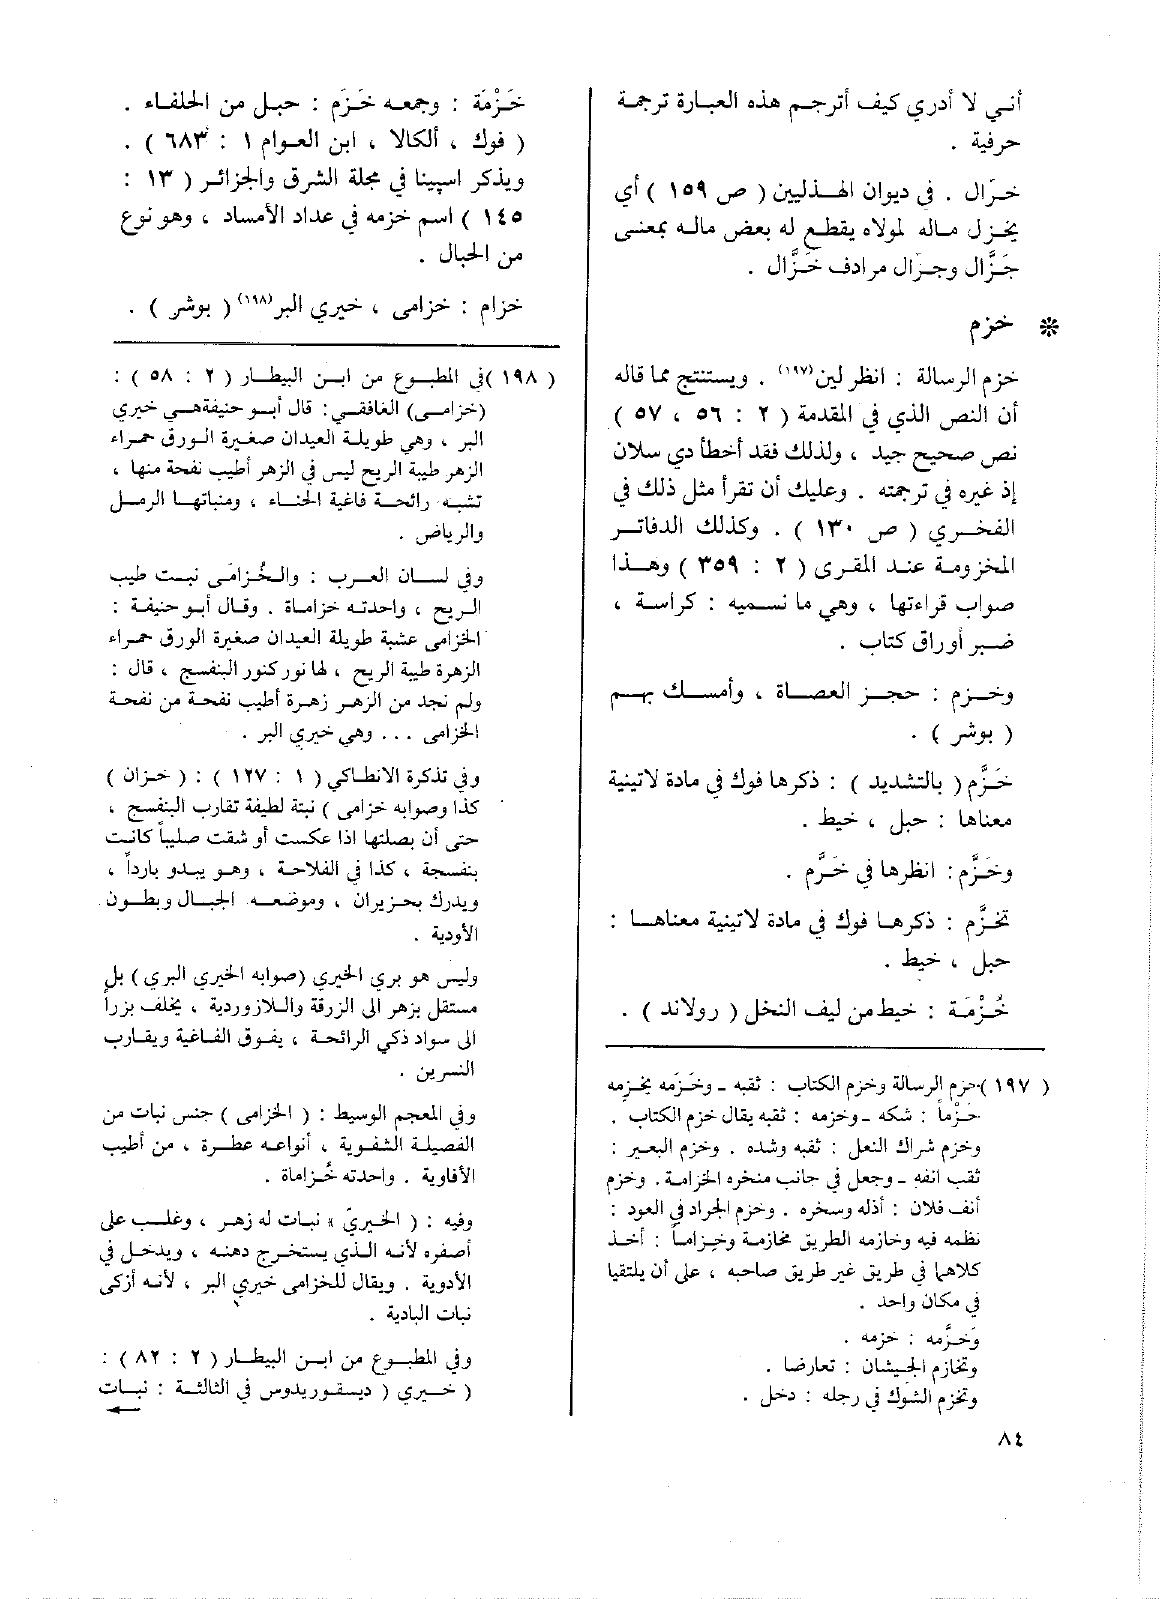 أنـي لا أدري كيف أترجم هذه العبارة ترجمة
حرفية .
خزّال . في ديوان الهـذليين ( ص ١٥٩ ) أي
يخزل مـالـه لمولاه يقطع له بعض مالـه بمعنـى
جَزَّال وجزّال مرادف خَزَّال .
* خزم
خزم الرسالة : انظر لين(١٩٧) . ويستنتج مما قاله
أن النص الذي في المقدمة ( ٢ : ٥٦ ، ٥٧ )
نص صحيح جيد ، ولذلك فقد أخطأ دي سلان
إذ غيره في ترجمته . وعليك أن تقرأ مثل ذلك في
الفخـري ( ص ١٣٠ ) . وكذلك الدفاتـر
المخزومـة عنـد المقرى ( ٢ : ٣٥٩ ) وهـذا
صواب قراءتهـا ، وهي ما نسميه : كراسة ،
ضبـر أوراق كتاب .
وخـزم : حجـز العصـاة ، وأمسـك بهـم
( بوشر ) .
خَزَّم ( بالتشديد ) : ذكرها فوك في مادة لاتينية
معناهـا : حبل ، خيط .
وخَزَّم : انظرها في خَرَّم .
تخزَّم : ذكرهـا فوك في مادة لاتينية معناهـا :
حبل ، خيط .
خُزْمَـة : خيط من ليف النخل ( رولاند ) .
( ١٩٧ ) خزم الرسالة وخزم الكتاب : ثقبه ـ وخَزَمه يخزِمه
خَزْماً : شكه ـ وخزمه : ثقبه يقال خزم الكتاب .
وخزم شراك النعل : ثقبه وشده . وخزم البعير :
ثقب انفه ـ وجعل في جانب منخره الخزامـة . وخزم
أنف فلان : أذله وسخره . وخزم الجراد في العود :
نظمه فيه وخازمه الطريق مخازمة وخِزاماً : أخـذ
كلاهما في طريق غير طريق صاحبه ، على أن يلتقيا
في مكان واحد .
وخَزَّمه : خزمه .
وتخازم الجيشان : تعارضا .
وتخزم الشوك في رجله : دخل .
٨٤
خَزْمَة : وجمعـه خَزَم : حبـل من الحلفـاء .
( فوك ، ألكالا ، ابن العـوام ١ : ٦٨٣ ) .
ويذكر اسپينا في مجلة الشرق والجزائـر ( ١٣ :
١٤٥ ) اسم خزمه في عداد الأمساد ، وهو نوع
من الحبال .
خزام : خزامى ، خيري البر(١٩٨) ( بوشر ) .
( ١٩٨ ) في المطبـوع من ابـن البيطـار ( ٢ : ٥٨ ) :
(خزامـى) الغافقـي : قال أبـو حنيفةهـي خيري
البر ، وهي طويلـة العيدان صغيرة الـورق حمـراء
الزهر طيبة الريح ليس في الزهر أطيب نفحة منها ،
تشبه رائحـة فاغية الحنـاء ، ومنباتهـا الرمـل
والرياض .
وفي لسـان العـرب : والـخُزامَى نبـت طيب
الريح ، واحدتـه خزامـاة . وقـال أبـو حنيفـة :
الخزامى عشبة طويلة العيدان صغيرة الورق حمـراء
الزهرة طيبة الريح ، لها نور كنور البنفسج ، قال :
ولم نجد من الزهـر زهـرة أطيب نفحـة من نفحـة
الخزامى . . . وهي خيري البر .
وفي تذكرة الانطـاكي ( ١ : ١٢٧ ) : ( خـزان )
كذا وصوابه خزامى ) نبتة لطيفة تقارب البنفسج ،
حتى أن بصلتها اذا عكست أو شقت صليباً كانـت
بنفسجة ، كذا في الفلاحـة ، وهـو يبـدو بارداً ،
ويدرك بحـزيران ، وموضعـه الجبـال وبطـون
الأودية .
وليس هو بري الخيري (صوابه الخيري البري) بل
مستقل يزهر الى الزرقة واللازوردية ، يخلف بزراً
الى سواد ذكي الرائحـة ، يفـوق الفـاغية ويقـارب
النسرين .
وفي المعجم الوسيط : ( الخزامى ) جنس نبات من
الفصيلـة الشفـوية ، أنواعـه عطـرة ، من أطيب
الأفاوية . واحدته خُزاماة .
وفيه : ( الخيريّ » نبـات له زهـر ، وغلـب على
أصفره لأنـه الـذي يستخـرج دهنـه ، ويدخـل في
الأدوية . ويقال للخزامى خيري البر ، لأنـه أزكى
نبات البادية .
وفي المطبـوع من ابـن البيطـار ( ٢ : ٨٢ ) :
( خيـري ( ديسقـوريدوس في الثالثـة : نبـات